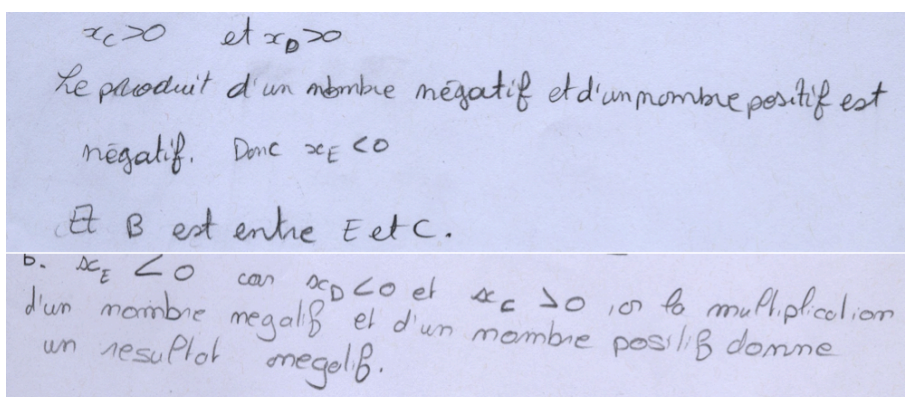 x_C>0 et x_D>0
Le produit d'un nombre négatif et d'un nombre positif est
négatif. Donc x_E <0
Et B est entre E et C.
b. x_E <0 car x_D<0 et x_C >0, or la multiplication
d'un nombre negatif et d'un nombre positif donne
un resultat negatif.